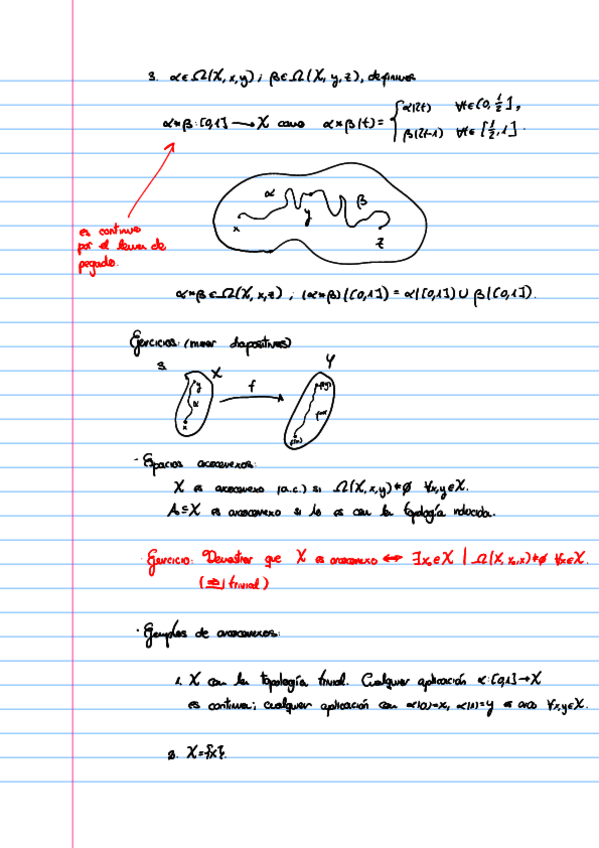 3. α∈Ω(X,x,y) ; β∈Ω(X,y,z), definimos
α*β:[0,1]→X como α*β(t)= { α(2t) ∀t∈[0,1/2],
β(2t-1) ∀t∈[1/2,1].
α β
x y z
es continua
por el lema de
pegado.
α*β∈Ω(X,x,z) ; (α*β)([0,1]) = α([0,1]) ∪ β([0,1]).
Ejercicios: (mirar diapositivas)
3. X f Y
y α x f(y) f∘α f(x)
· Espacios arcoconexos:
X es arcoconexo (a.c.) si Ω(X,x,y)≠∅ ∀x,y∈X.
A⊆X es arcoconexo si lo es con la topología inducida.
· Ejercicio: Demostrar que X es arcoconexo ↔ ∃x₀∈X | Ω(X,x₀,x)≠∅ ∀x∈X.
(⇒) trivial)
· Ejemplos de arcoconexos:
1. X con la topología trivial. Cualquier aplicación α:[0,1]→X
es continua; cualquier aplicación con α(0)=x, α(1)=y es arco ∀x,y∈X.
2. X={x}.